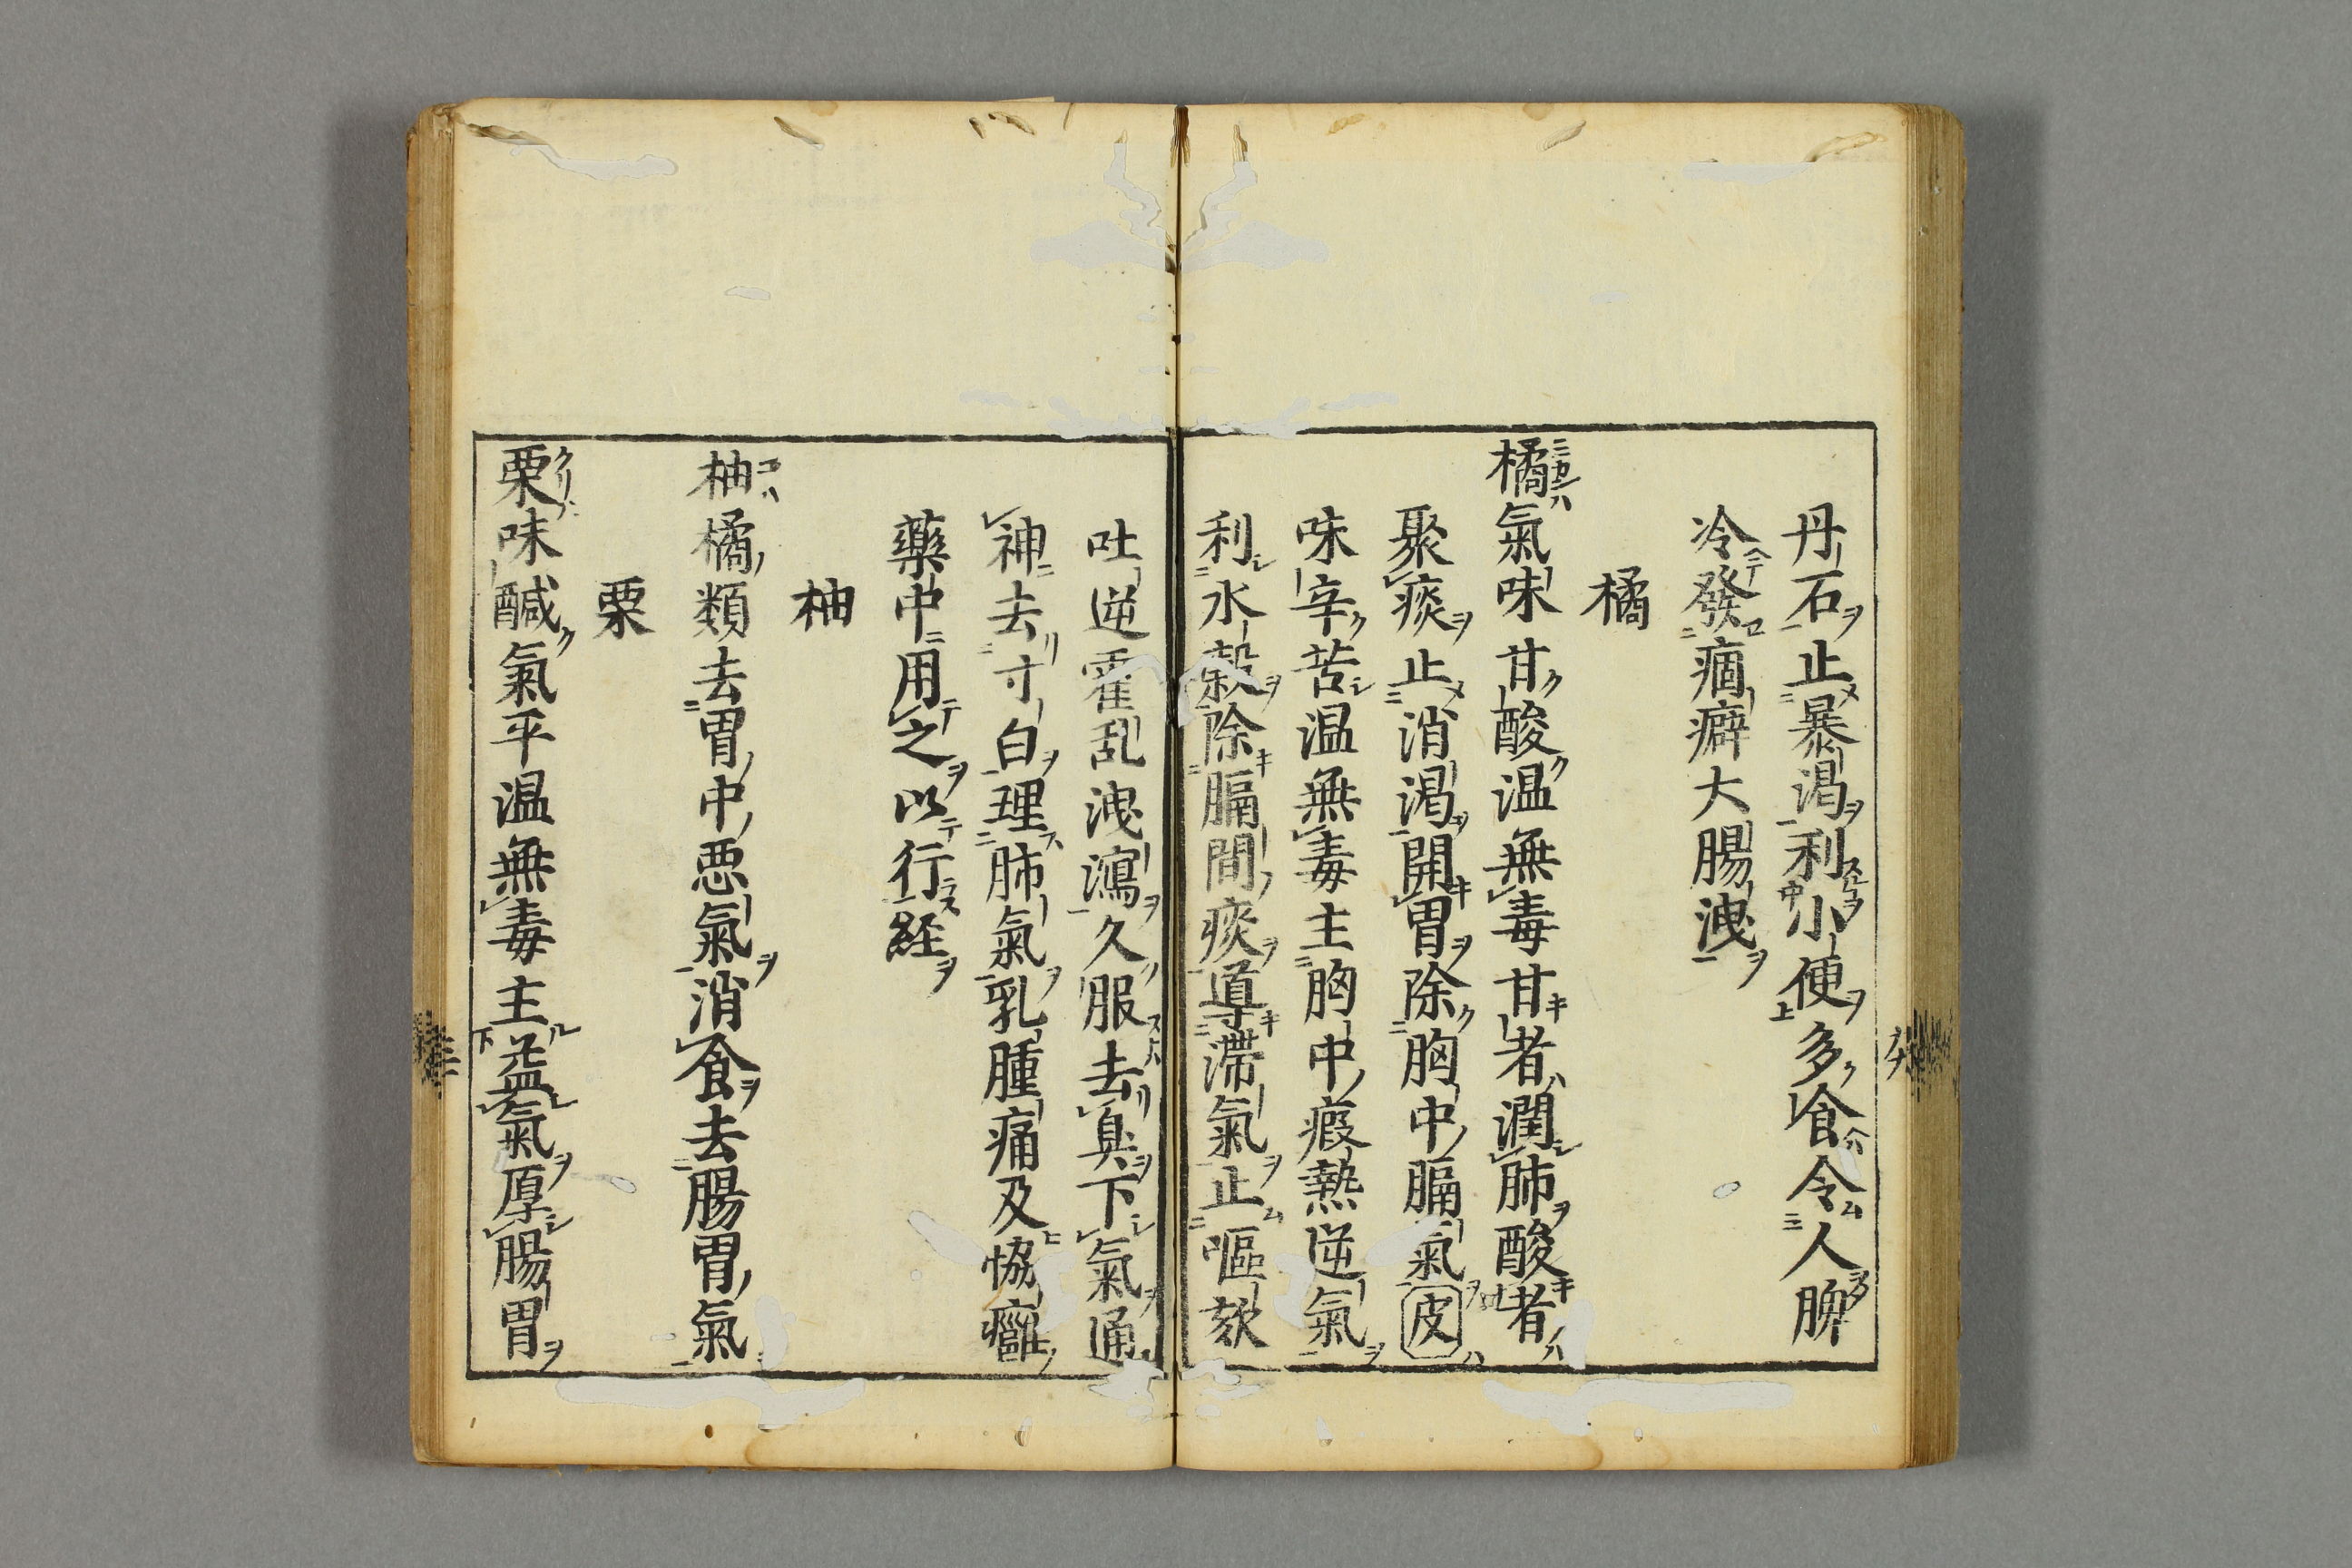 丹石止暴渇利小便多食令人脾
冷發痼癖大腸洩
橘
橘氣味甘酸温無毒甘者潤肺酸者
聚痰止消渇開胃除胸中膈氣皮
味辛苦温無毒主胸中瘕熱逆氣
利水穀除膈間痰導滯氣止嘔欬
吐逆霍乱洩瀉久服去臭下氣通
神去寸白理肺氣乳腫痛及脇癰
藥中用之以行経
柚
柚橘類去胃中悪氣消食去腸胃氣
栗
栗味鹹氣平温無毒主益氣厚腸胃